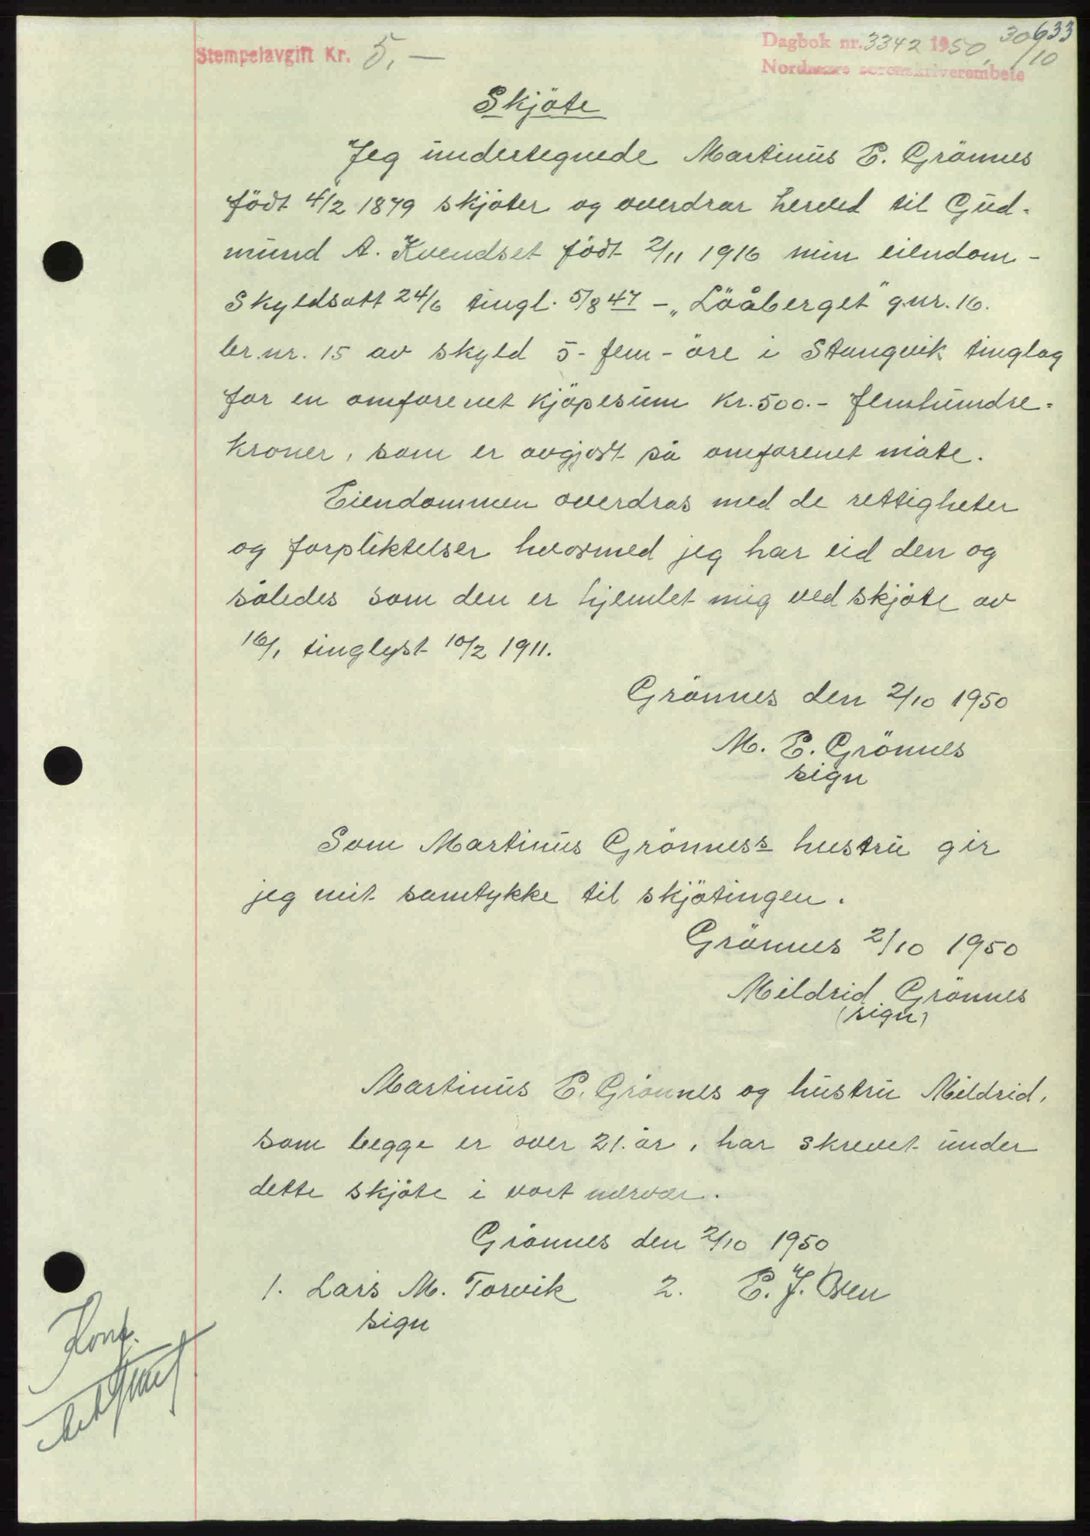 633
Stempelavgift Kr. 5,—
Dagbok nr. 3342 1950, 30/10
Nordmøre sorenskriverembete
Skjöte
Jeg undertegnede Martinus E. Grönnes
födt 4/2 1879 skjöter og overdrar herved til Gud-
mund A. Kvendset födt 2/11 1916 min eiendom -
Skyldsatt 24/6 tingl. 5/8 47 - „Löåberget" g.nr. 16.
br.nr. 15 av skyld 5 - fem - öre i Stangvik tinglag
for en omforenet kjöpesum Kr. 500.- femhundre-
kroner, som er avgjort på omforenet måte.
Eiendommen overdras med de rettigheter
og forpliktelser hvormed jeg har eid den og
således som den er hjemlet mig ved skjöte av
16/1 tinglyst 10/2 1911.
Grönnes den 2/10 1950
M. E. Grönnes
sign
Som Martinus Grönness hustru gir
jeg mit samtykke til skjötingen.
Grönnes 2/10 1950
Mildrid Grönnes
(sign)
Martinus E. Grönnes og hustru Mildrid,
som begge er over 21. år, har skrevet under
dette skjöte i vort nærvær.
Grönnes den 2/10 1950
1. Lars M. Torvik 2. E. J. Osen
sign
Konf.